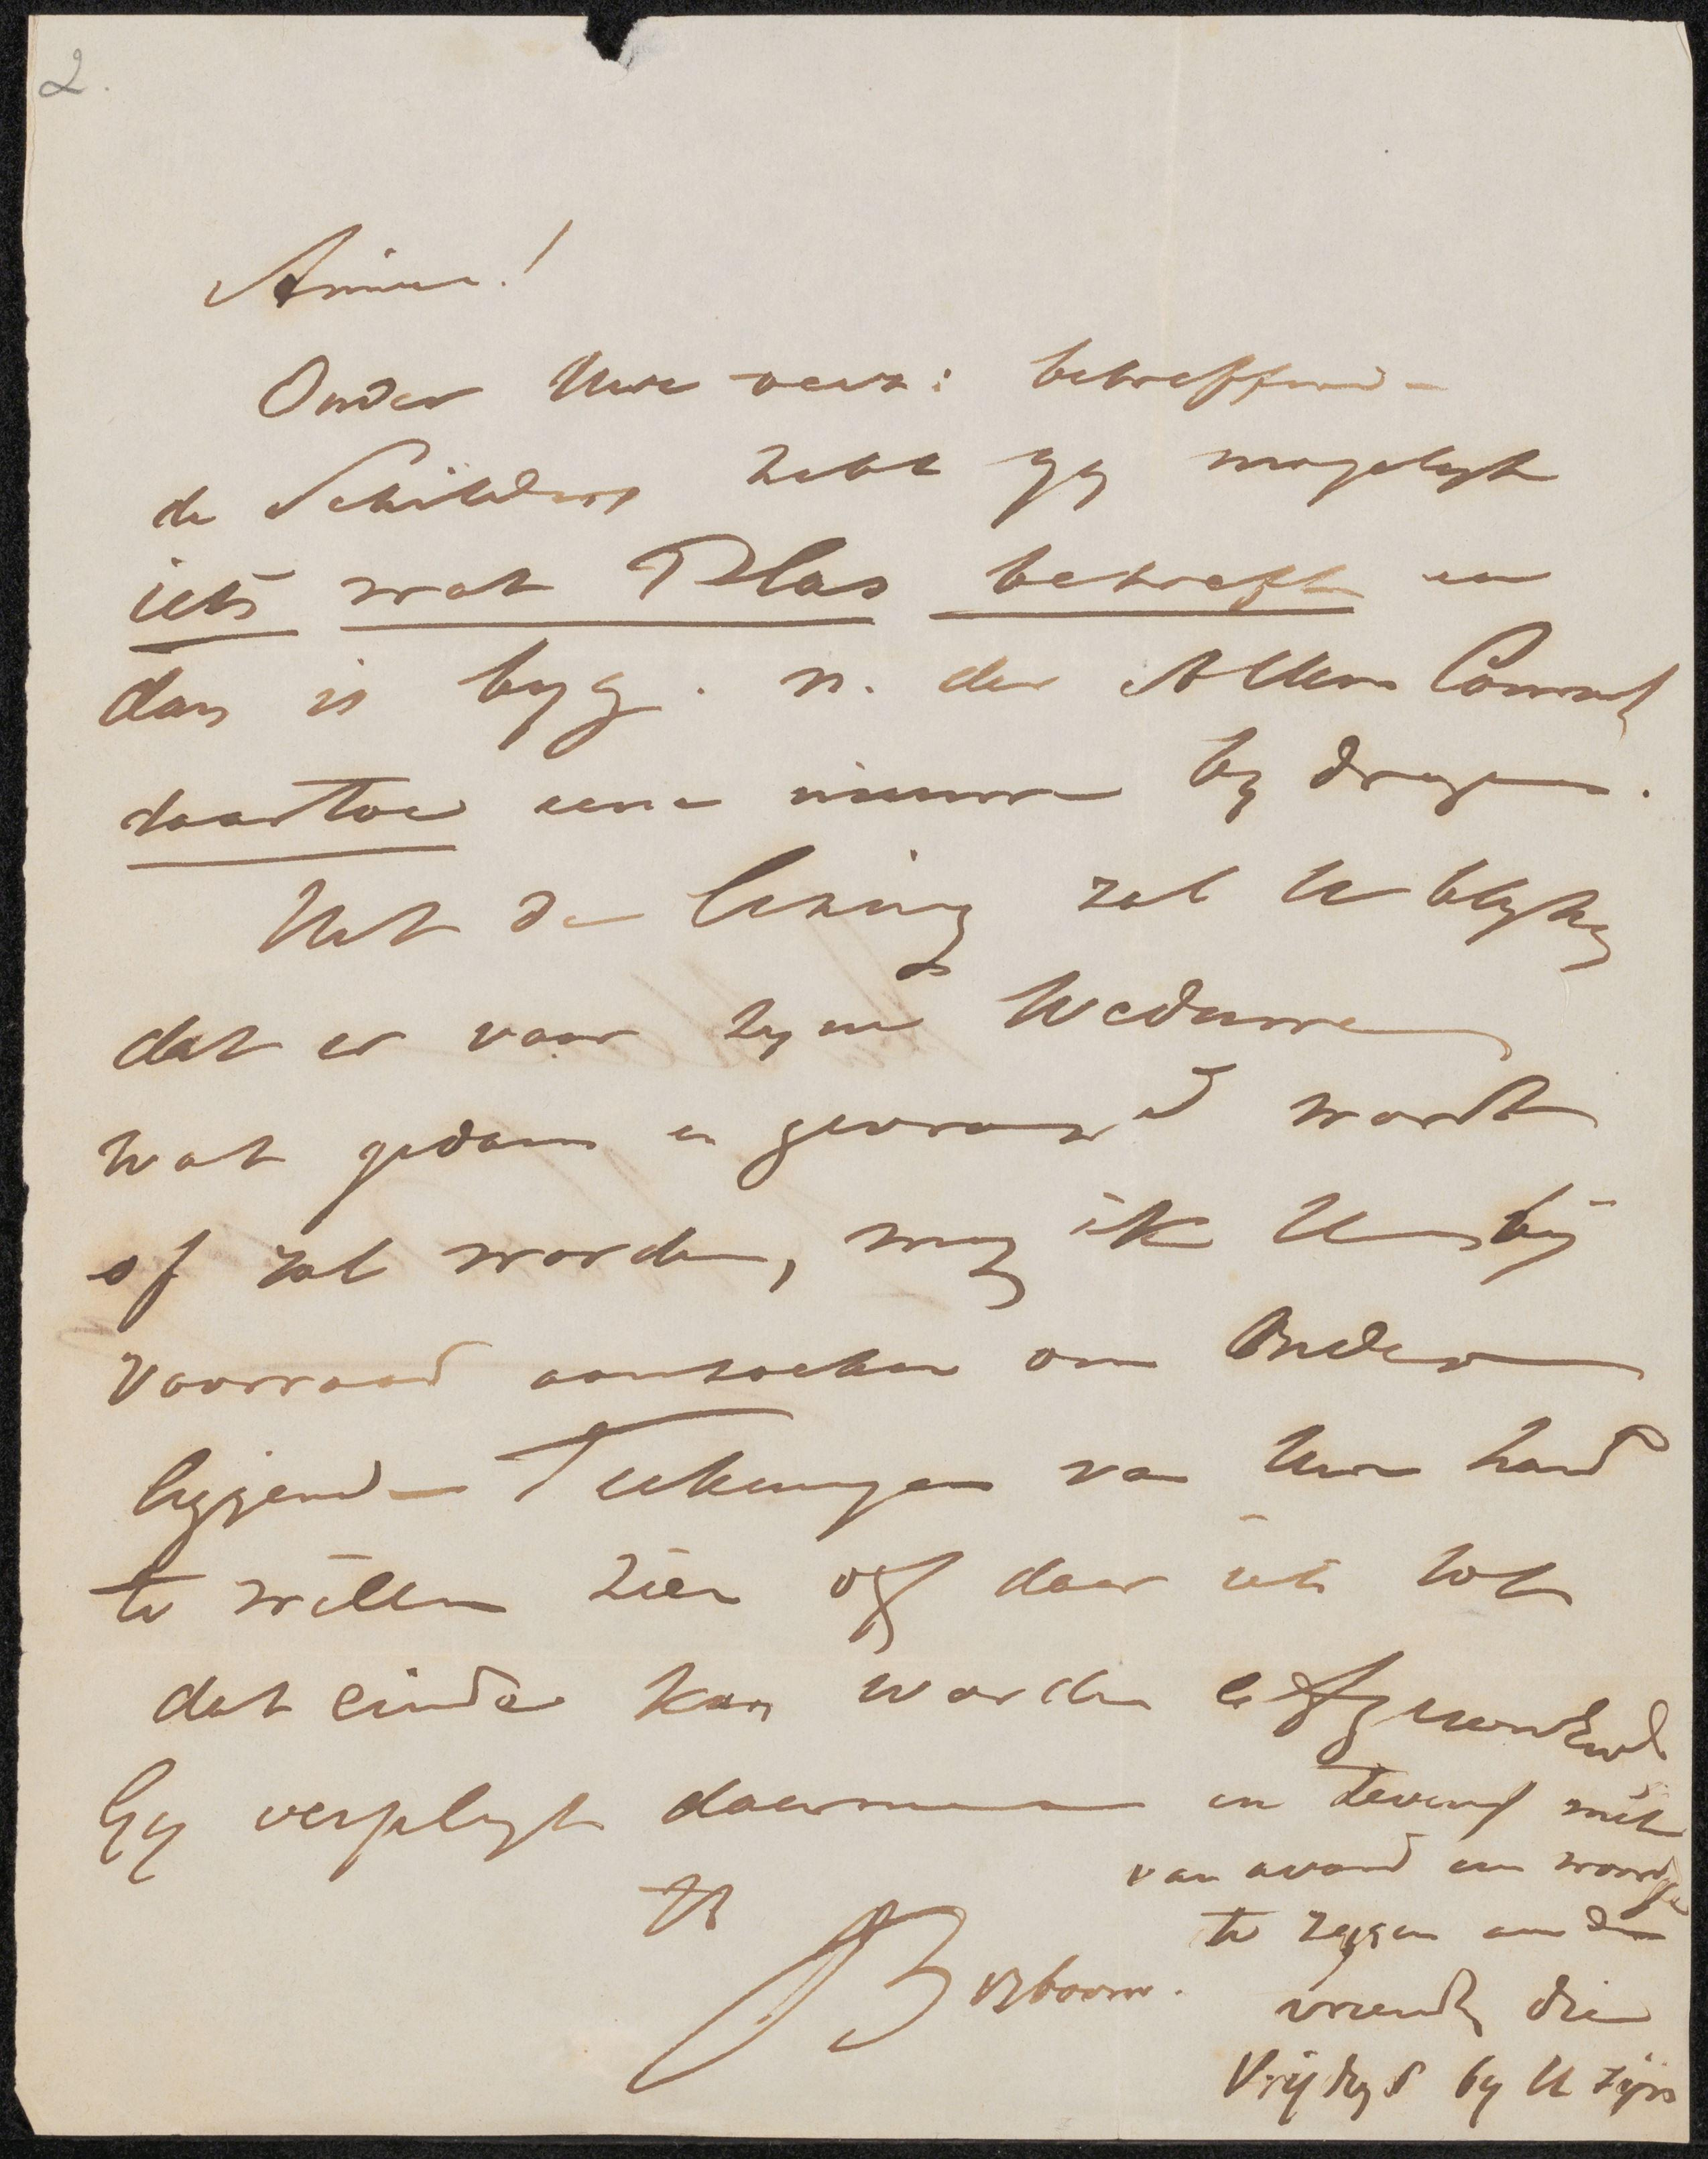 2.
Amice!
Onder Uwe verz: betreffende
de Schilders hebt gy mogelyk
iets wat Plas betreft en
dan is byg. n. der Allem Courant
daartoe eene nieuwe by drage.
Uit de lezing zal U blyken
dat er voor zyne Weduwe
wat gedaan en gevraagd wordt
of zal worden, mag ik U bij
voorraad aanzoeken om onder
liggende Teekeningen van Uwe hand
te willen zien of daar iets tot
dat einde kan worden afgezonderd
Gy verpligt daarmeê en tevens met
van avond een woordje
te zeggen aan de
vrienden die
Vrijdags by U zijn
tt
JBosboom.